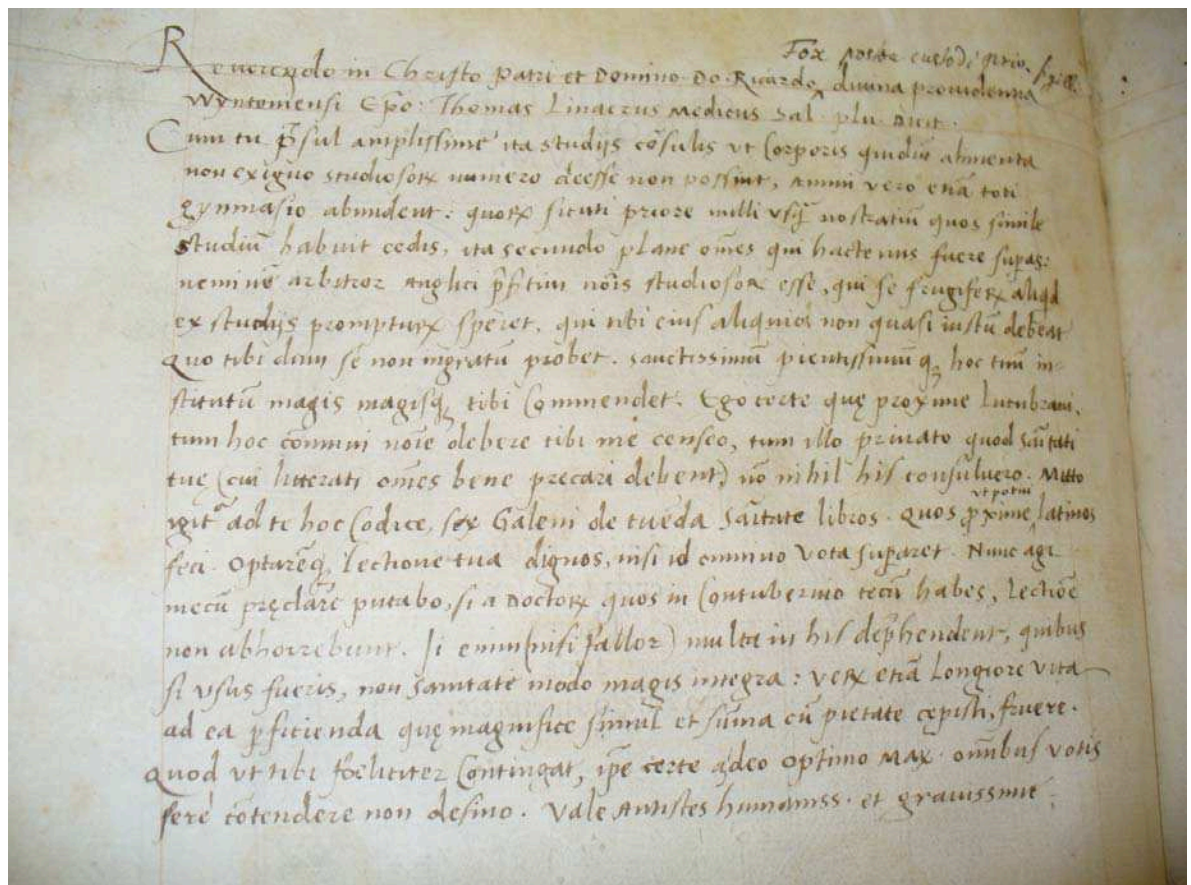 Fox
Reuerendo in Christo Patri et Domino Do. Ricardo diuina prouidentia
Wyntoniensi Ep̃o. Thomas Linacrus Medicus Sal. plu. Dicit.
Cum tu p̃sul amplissime ita studijs cõsulis vt Corporis quidẽ alimenta
non exiguo studiosoꝝ numero deesse non possint, animi vero etiã toti
gymnasio abundent: quoꝝ sicuti priore nulli vsq̃ nostratiũ quos simile
studiũ habuit cedis, ita secundo plane om̃es qui hactenus fuere sup̃as:
neminẽ arbitror anglici p̃sertim nõis studiosoꝝ esse, qui se frugiferꝝ aliqd
ex studijs prompturꝝ speret, qui tibi eius aliquid non quasi iustũ debeat
Quo tibi dum se non ingratũ probet. sanctissimum pientissimumqꝫ hoc tuũ in-
stitutũ magis magisqꝫ tibi Commendet. Ego certe quę proxime Lucubraui,
tum hoc cõmuni nõie debere tibi me censeo, tum illo priuato quod sãitati
tuę (cui litterati om̃es bene precari debent) nõ nihil his consuluero. Mitto
igitᷓ ad te hoc Codice, sex Galeni de tuẽda Sãitate libros. Quos p̃xime vt potui latinos
feci. Optarẽqꝫ lectione tua dignos, nisi id omnino vota sup̃aret. Nunc agi
mecũ pręclare putabo, si a Doctoꝝ quos in Contubernio tecũ habes, lectiõe
non abhorrebunt. Ii enim (nisi fallor) multa in his dep̃hendent, quibus
si vsus fueris, non sanitate modo magis integra: veꝝ etiã Longiore vita
ad ea p̃ficienda quę magnifice simul et sũma cũ pietate cepisti, fruere.
Quod vt tibi fœliciter Contingat, ip̃e certe a deo Optimo Max. omnibus votis
fere cõtendere non desino. Vale Antistes humaniss. et grauissime